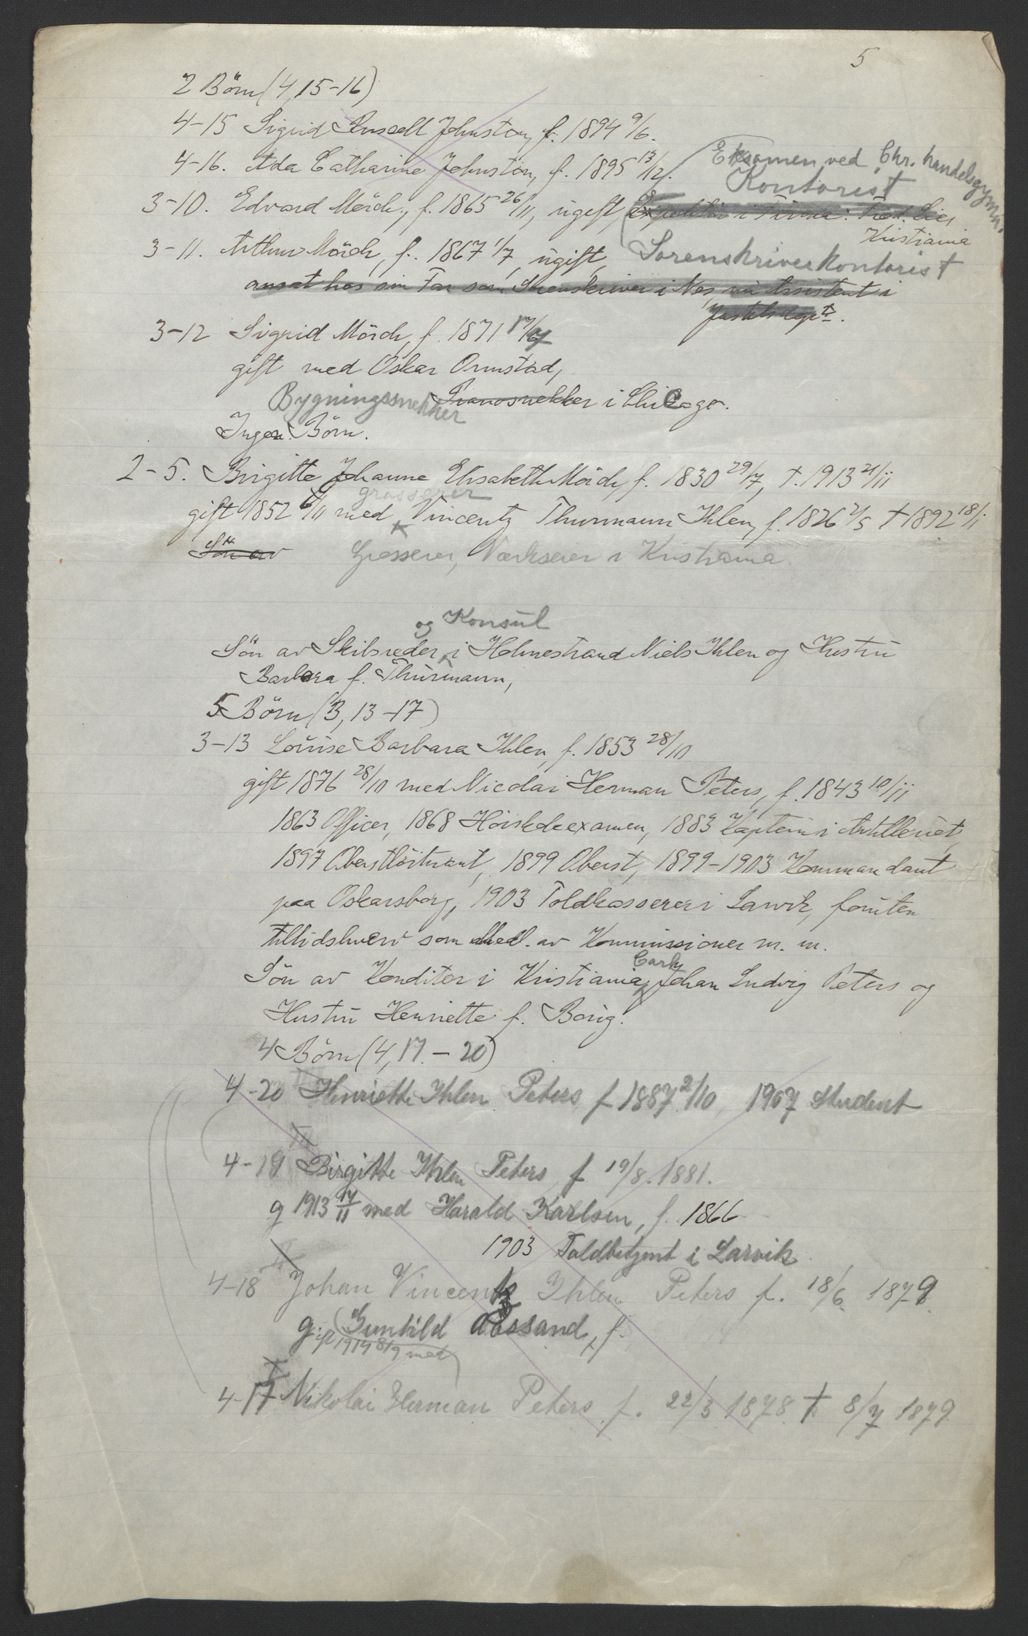 5
2 Börn (4,15-16)
4-15 Sigrid Johnston, f. 1894 9/6.
4-16. Ada Catharina Johnston, f. 1895 13/12.
Eksamen ved Chr. handelsgymn.
Kontorist
3-10. Edvard Mörch, f. 1865 26/11, ugift, Expeditör i Firma:
Kristiania
3-11. Arthur Mörch, f. 1867 1/7, ugift, Sorenskriverkontorist
ansat hos sin Far som Sorenskriver i Nes, nu Assistent i
Justitsdept.
3-12 Sigrid Mörch, f. 1871
gift med Oskar Ormstad,
Bygningssnekker Pianosnekker i Chicago.
Ingen Börn.
2-5. Birgitte Johanne Elisabeth Mörch, f. 1830 29/7, † 1913 21/11
grosserer
gift 1852 6/11 med Vincentz Thurmann Ihlen, f. 1826 2/5 † 1892 18/1
Sön av Grosserer, Værkseier i Kristiania.
og Konsul
Sön av Skibsreder i Holmestrand Niels Ihlen og Hustru
Barbara f. Thurmann,
5 Börn (3, 13-17)
3-13 Louise Barbara Ihlen, f. 1853 28/10
gift 1876 28/10 med Nicolai Herman Peters, f. 1843 10/11
1863 Officer, 1868 Höiskoleexamen, 1883 Kaptein i Artilleriet,
1897 Oberstlöitnant, 1899 Oberst, 1899-1903 Kommandant
paa Oskarsborg, 1903 Toldkasserer i Larvik, foruten
tillidshverv som Medl. av Kommissioner m. m.
Carl
Sön av Konditor i Kristiania, Johan Ludvig Peters og
Hustru Henriette f. Borig.
4 Börn (4, 17 - 20)
4-20 Henriette Ihlen Peters f 1887 2/10 1907 Student
4-19 Birgitte Ihlen Peters f 19/8. 1881.
g 1913 17/11 med Harald Karlsen, f. 1866
1903 Toldbetjent i Larvik
4-18 Johan Vincentz Ihlen Peters f. 18/6. 1879.
gift 1919 8/9 med Gunhild Aassand, f.
4-17 Nikolai Herman Peters f. 22/3 1878. † 8/7 1879